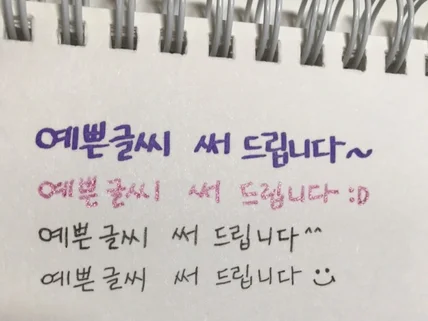 예쁜글씨 써 드립니다~
예쁜글씨 써 드립니다 :D
예쁜글씨 써 드립니다^^
예쁜글씨 써 드립니다 :)